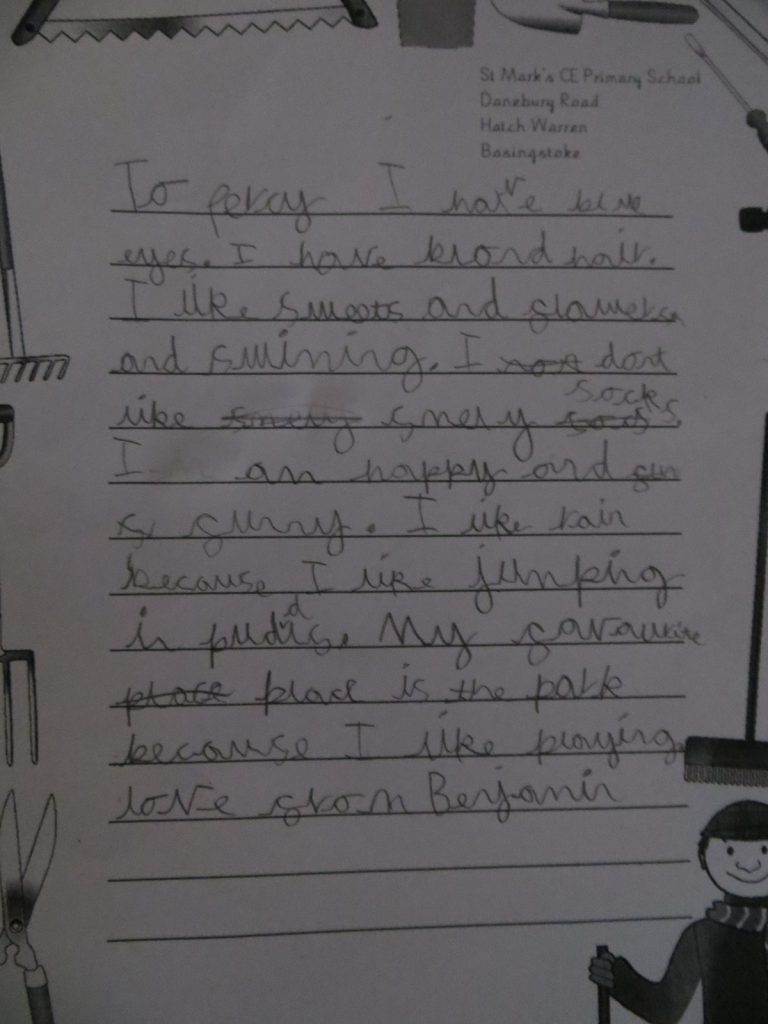 St Mark's CE Primary School
Danebury Road
Hatch Warren
Basingstoke
To percy I have blue
eyes. I have blond hair.
I like sweets and flawers
and swiming. I dont
like smely socks
I am happy and fun
funny. I like rain
because I like jumping
in puddls. My favaurite
place is the park
because I like playing.
love from Benjamin